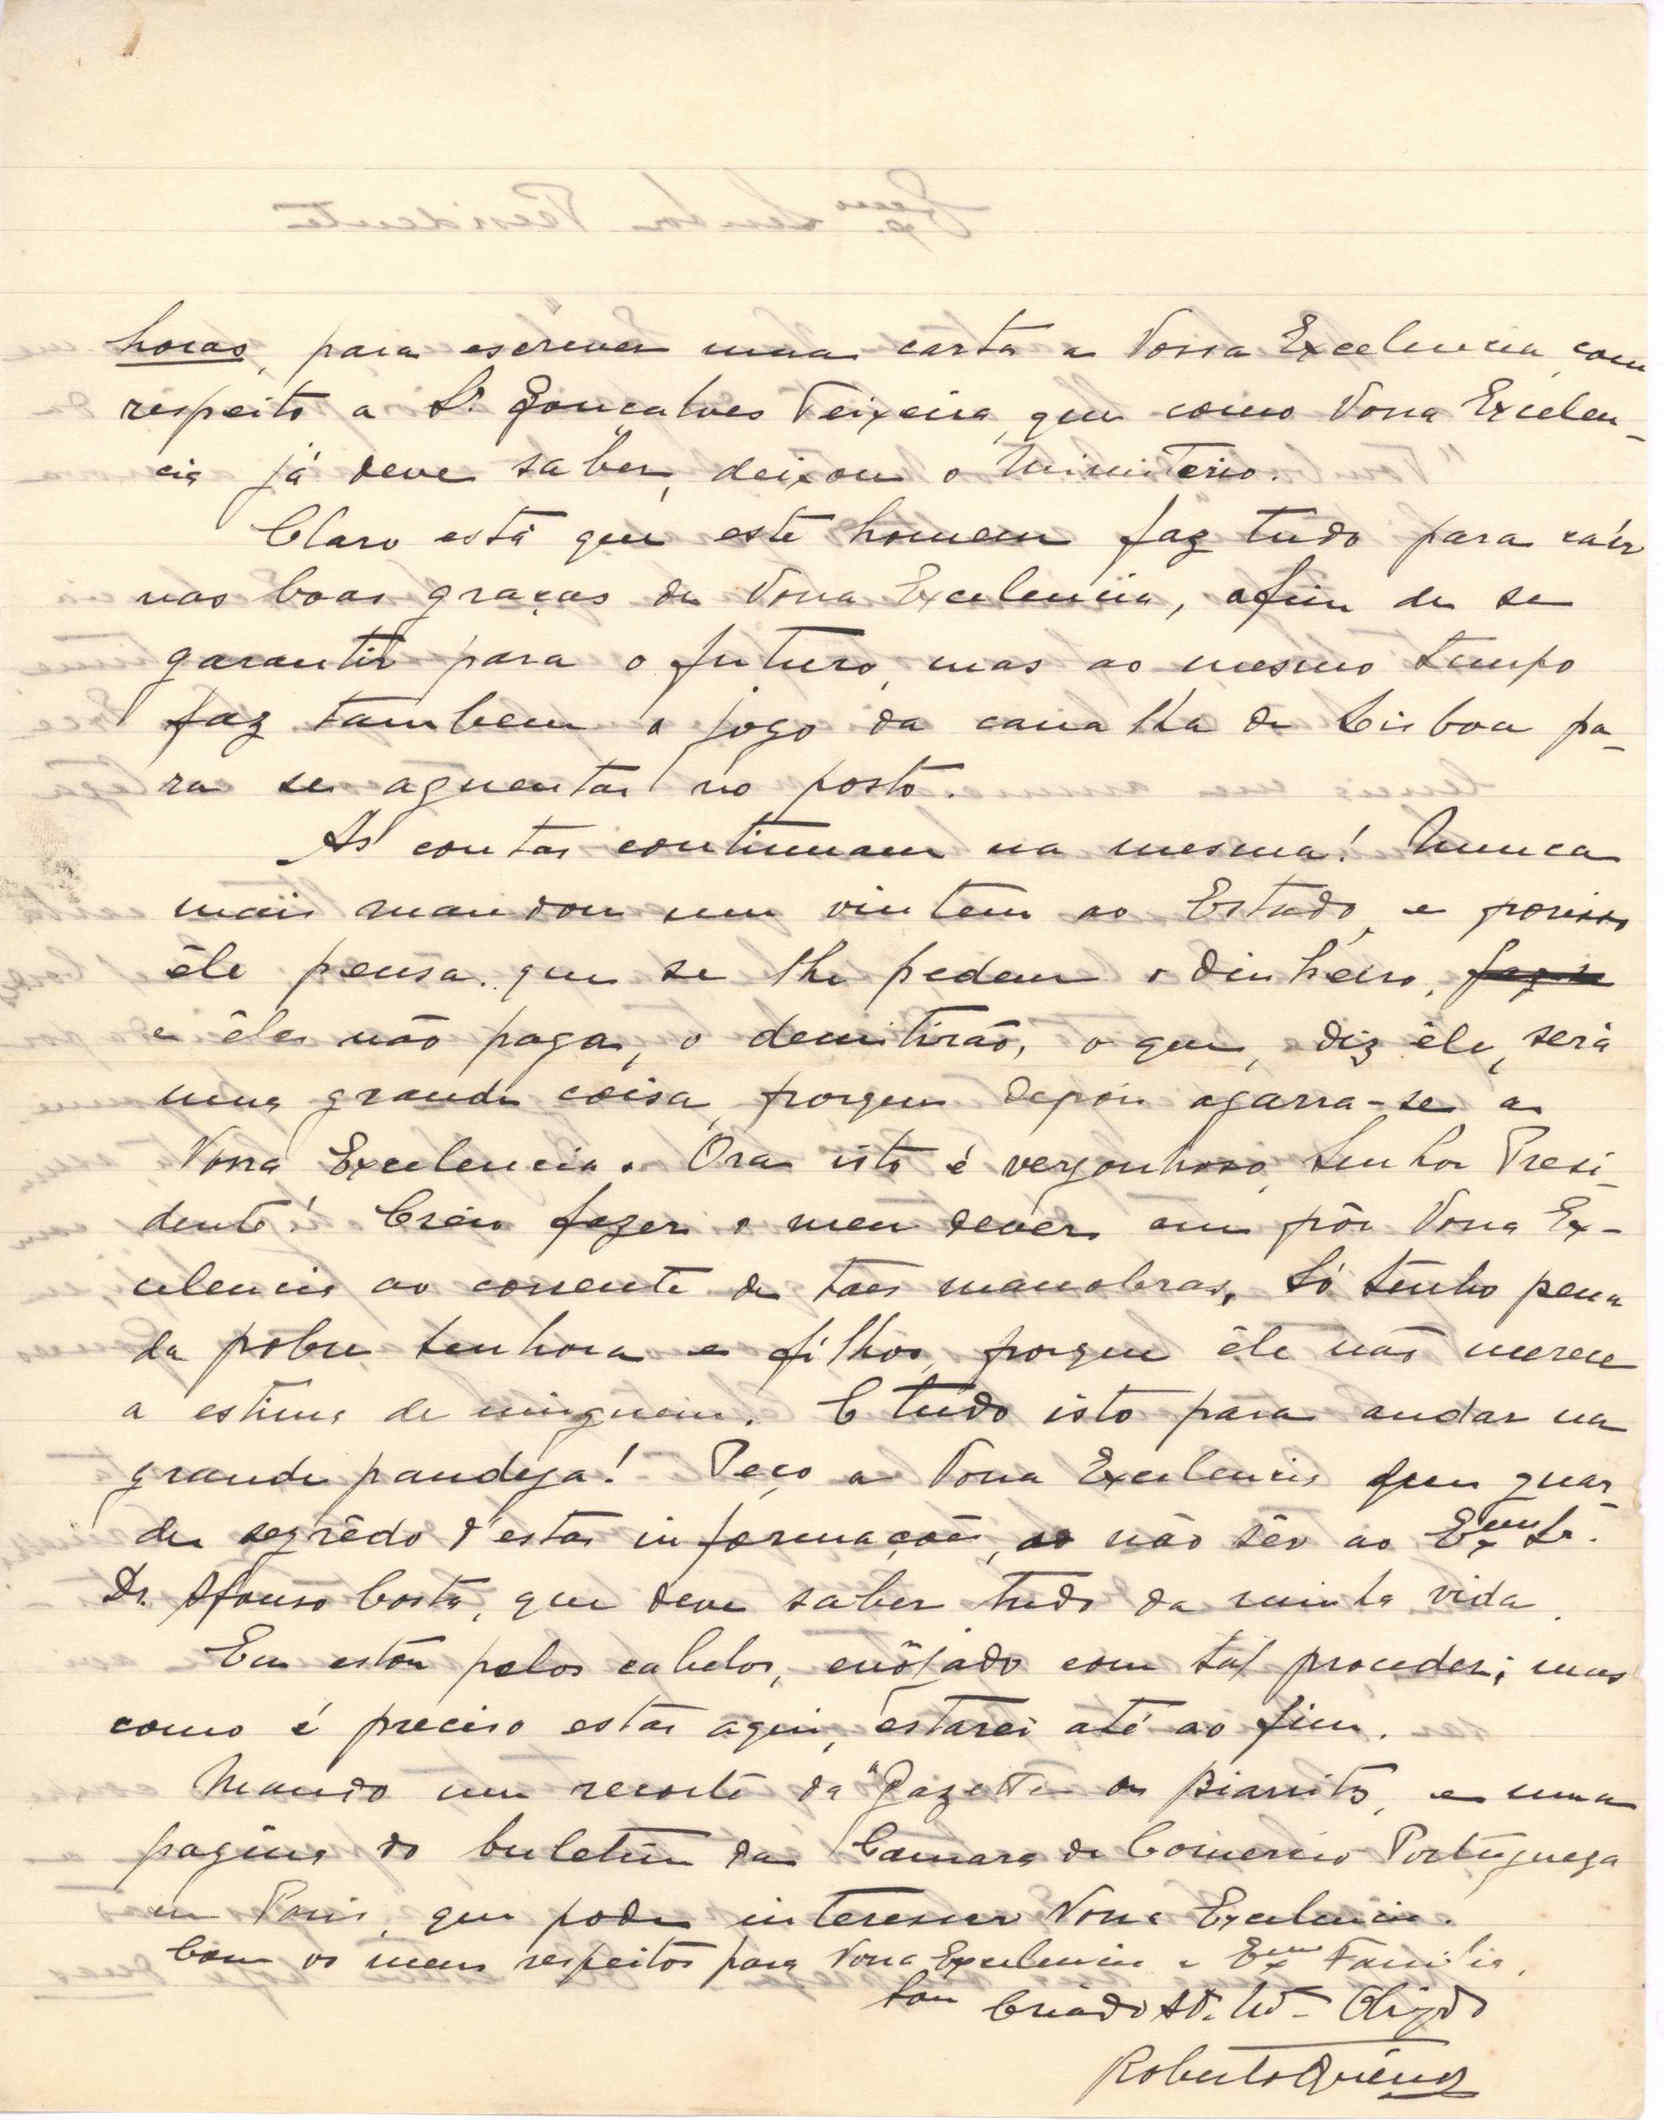 horas, para escrever uma carta a Vossa Excelencia, com
respeito a Sr. Gonçalves Teixeira, que como Vossa Excelen-
cia já deve saber, deixou o Ministerio.
Claro está que este homem faz tudo para caír
nas boas graças de Vossa Excelencia, afim de se
garantir para o futuro, mas ao mesmo tempo
faz tambem o jogo da canalha de Lisboa pa-
ra se aguentar no posto.
As contas continuam na mesma! Nunca
mais mandou um vintem ao Estado, e porisso
êle pensa que se lhe pedem o dinheiro,
e êle não paga, o demitirão, o que, diz êle, será
uma grande coisa, porque depois agarra-se a
Vossa Excelencia. Ora isto é vergonhoso, Senhor Presi-
dente! Creio fazer o meu dever em pôr Vossa Ex-
celencia ao corrente de taes manobras. Só tenho pena
da pobre senhora e filhos, porque êle não merece
a estima de ninguem. E tudo isto para andar na
grande pandega! Peço a Vossa Excelencia que guar-
de segrêdo d'estas informações, a não sêr ao Exmo Sr.
Dr. Afonso Costa, que deve saber tudo da minha vida.
Eu estou pelos cabelos, enôjado com tal proceder; mas
como é preciso estar aqui, estarei até ao fim.
Mando um recorte da "Gazette de Biarritz, e uma
pagina do buletim da Camara de Comercio Portugueza
em Paris, que pode interessar Vossa Excelencia.
Com os meus respeitos para Vossa Excelencia e Exma Familia,
Sou Criado At. Vor Obrigdo
Roberto